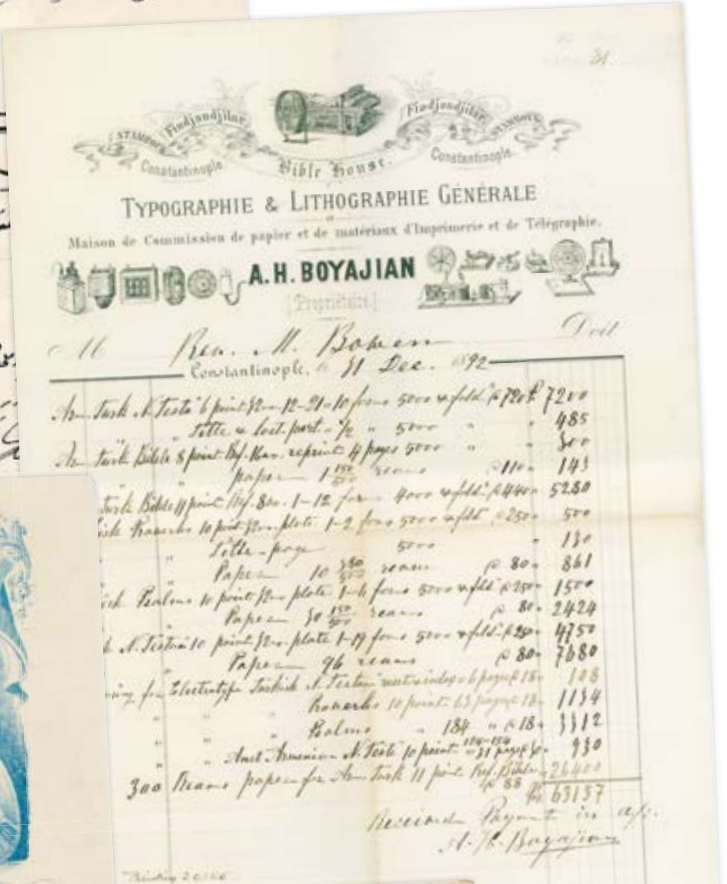 31
STAMBOUL Findjandjilar Findjandjilar STAMBOUL
Constantinople Bible House. Constantinople
TYPOGRAPHIE & LITHOGRAPHIE GÉNÉRALE
Maison de Commission de papier et de matériaux d'Imprimerie et de Télégraphie.
A.H. BOYAJIAN
[Propriétaire]
M Rev. M. Bowen Doit
Constantinople, le 31 Dec. 1892
Turk N. Testa 6 point 32mo 12-21=10 forms 5000 & fold. @ 720 7200
" Title & last part = ½ " 5000 " " 485
Turk Bible 8 point Ref. reprint 4 pages 5000 " " 300
" paper 1 150/500 reams @ 110 143
Turk Bible 11 point Ref. 8vo. 1-12 forms 4000 & fold. @ 440 5280
Proverbs 10 point 32mo plate 1-2 forms 5000 & fold. @ 250 500
" " Title-page 5000 " 130
" Paper 10 reams @ 80 861
Psalms 10 point 32mo plate 1-6 forms 5000 & fold. @ 250 1500
" Paper 30 150/500 reams @ 80 2424
N. Testa 10 point 32mo plate 1-19 forms 5000 & fold. @ 250 4750
" Paper 96 reams @ 80 7680
for Electrotype Turkish N. Testa index = 6 pages @ 18 108
" " " Proverbs 10 point 63 pages @ 18 1134
" " " Psalms " 184 " @ 18 3312
" " Armenian N. Testa 10 point 31 pages @ 930
300 Reams paper for Arm Turk 11 point Ref. Bible @ 88 26400
63137
Received Payment in
A. H. Boyajian
Printing